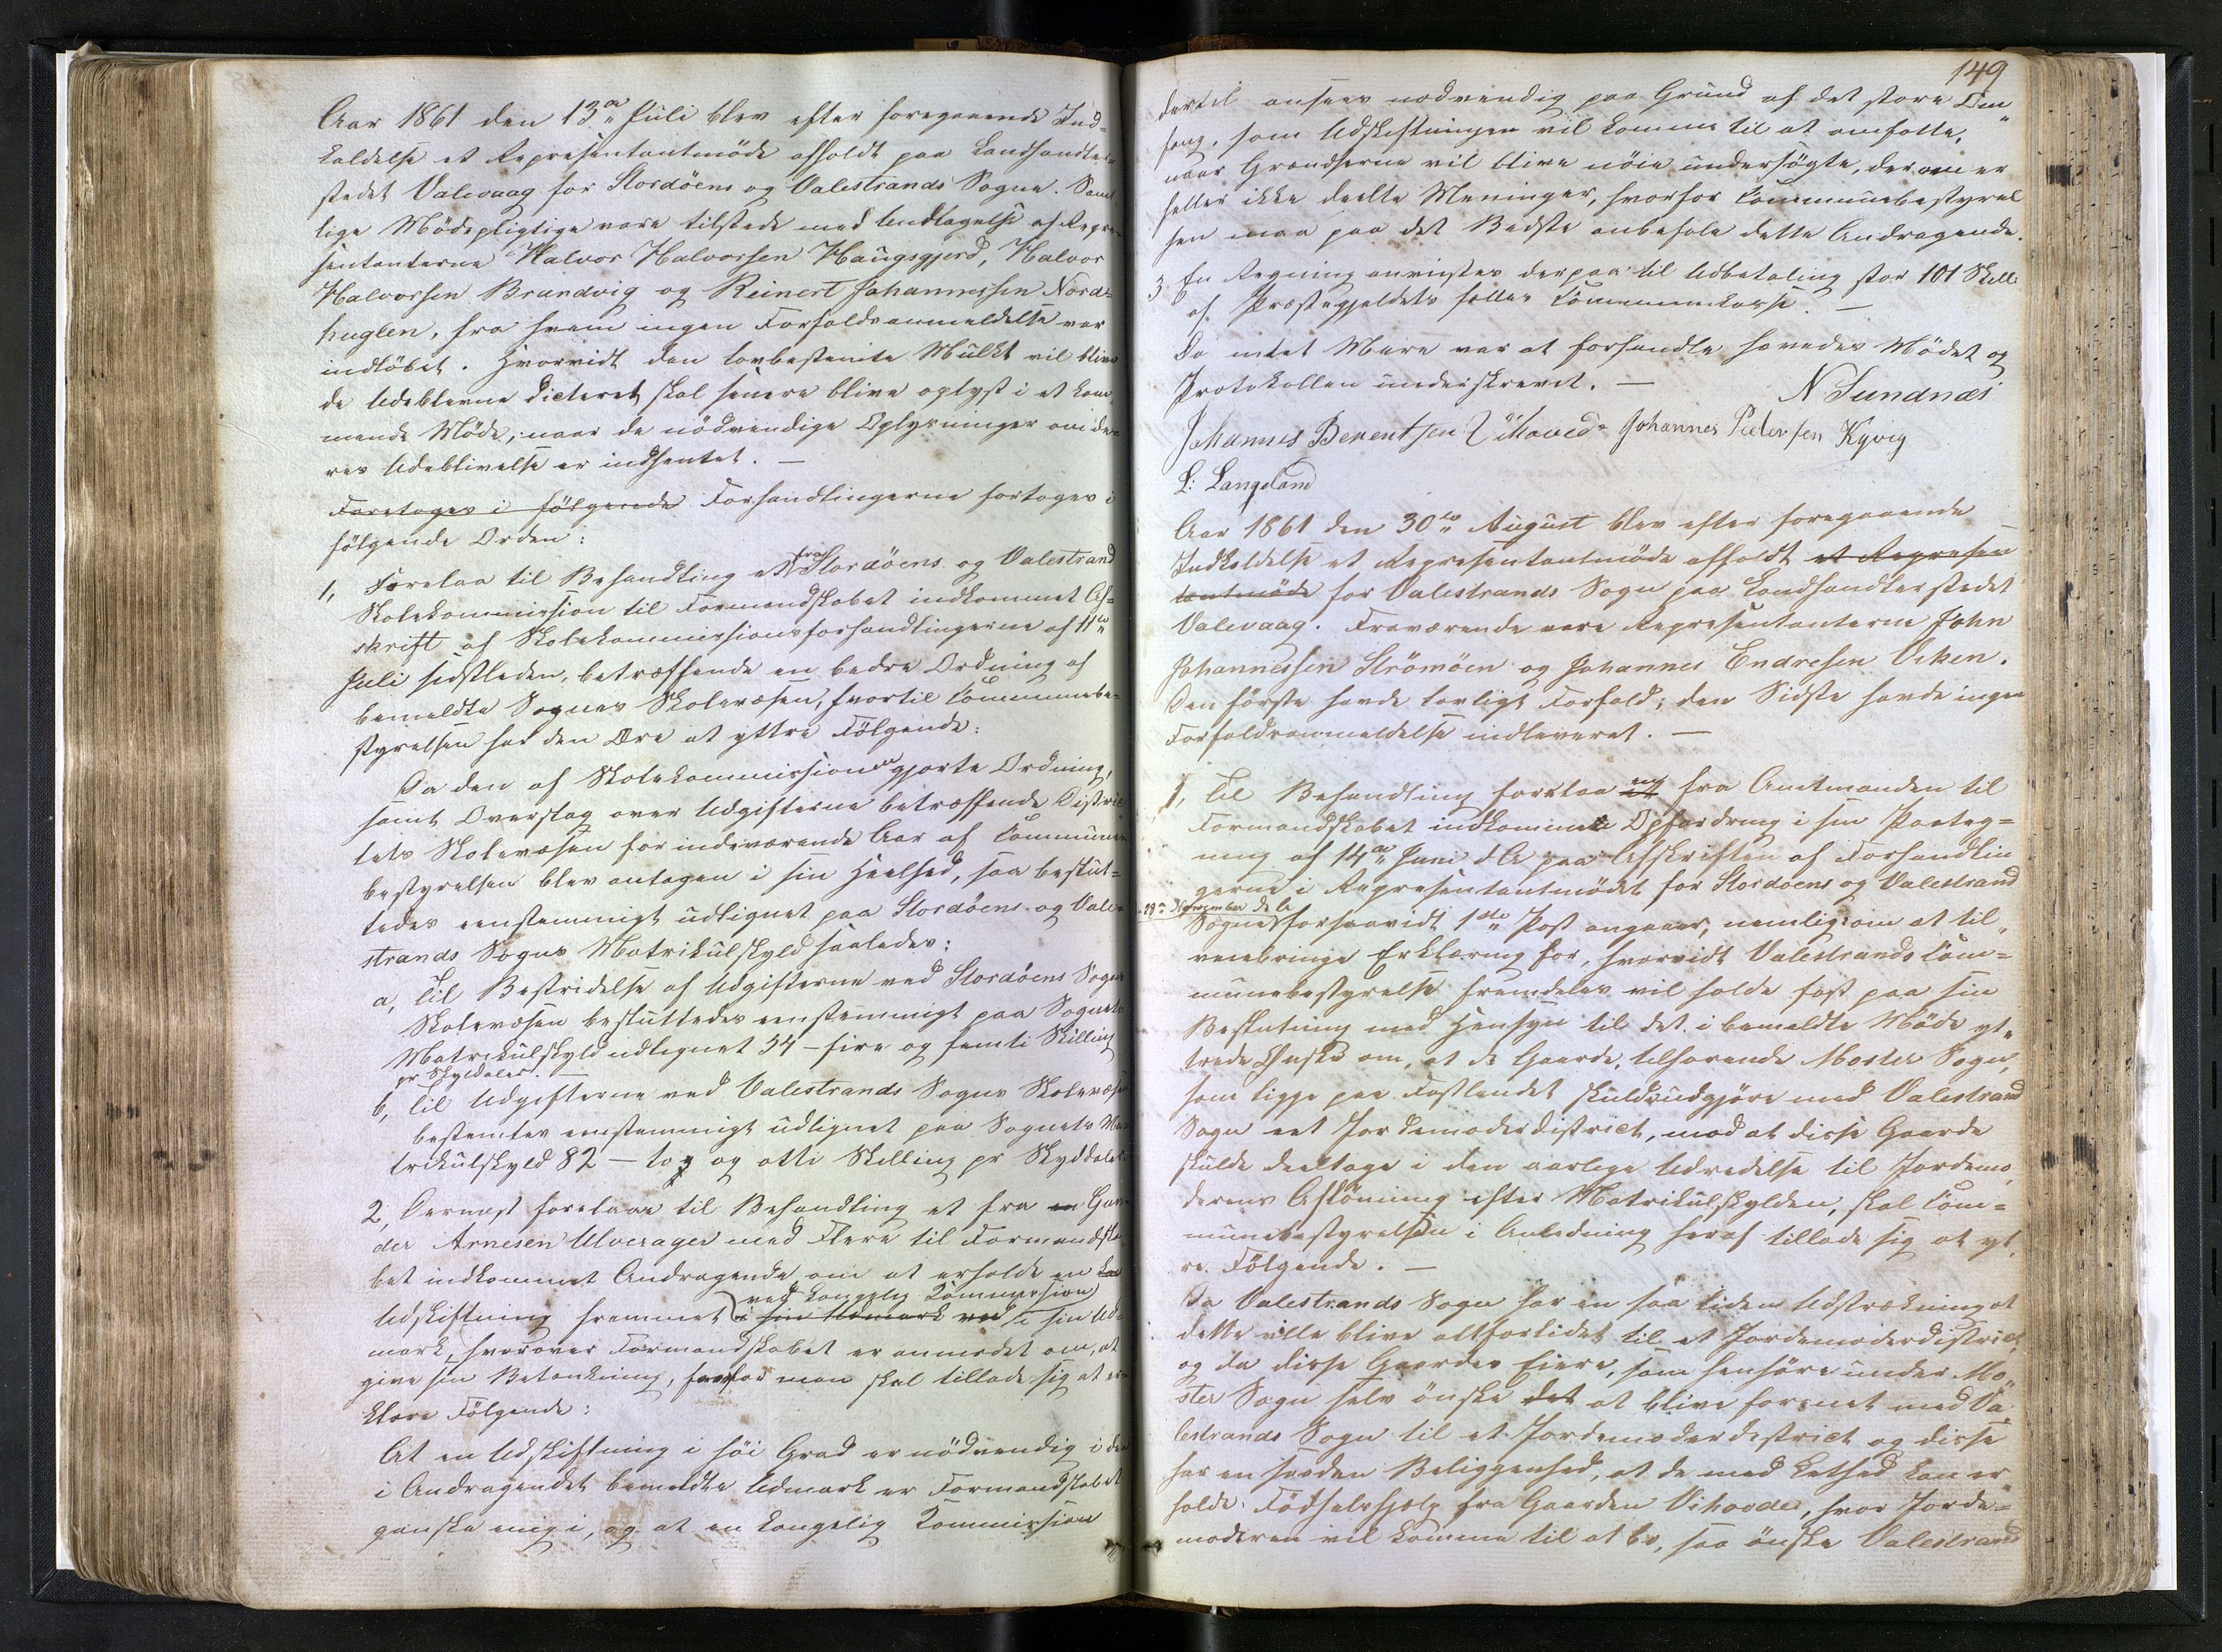 Aar 1861 den 13de Juli blev efter foregaaende Ind-
kaldelse et Repræsentantmöde afholdt paa Landhandler-
stedet Valevaag for Stordöens og Valestrands Sogne. Samt
lige Mödepligtige vare tilstede med Undtagelse af Repræ-
sentanterne Halvor Halvorsen Haugsgjerd, Halvor
Halvorsen Brandvig og Reinert Johannessen Nord-
huglen, fra hvem ingen Forfaldsanmeldelse var
indlöbet. Hvorvidt den lovbestemte Mulkt vil blive
de Udeblevne dicteret skal senere blive oplyst i et kom
mende Möde, naar de nödvendige Oplysninger om de-
res Udeblivelse er indhentet. —
Foretoges i fölgende Forhandlingerne fortoges i
fölgende Orden:
1, Forelaa til Behandling et fra Stordöens og Valestrand
Skolekommission til Formandskabet indkommet Af-
skrift af Skolekommissionsforhandlingerne af 11te
Juli sidstleden, betræffende en bedre Ordning af
bemeldte Sognes Skolevæsen, hvortil Communebe-
styrelsen har den Ære at yttre Fölgende:
Da den af Skolekommissionen gjorte Ordning,
samt Overslag over Udgifterne betræffende Distric
tets Skolevæsen for indeværende Aar af Commune
bestyrelsen blev antagen i sin Heelhed, saa beslut-
tedes eenstemmigt udlignet paa Stordöens og Vale-
strands Sogns Matrikulskyld saaledes:
a, Til Bestridelse af Udgifterne ved Stordöens Sogns
Skolevæsen besluttedes eenstemmigt paa Sognets
Matrikulskyld udlignet 54 – fire og femti Skilling
pr Skyldaler. —
b, Til Udgifterne ved Valestrands Sogns Skolevæsen
bestemtes eenstemmigt udlignet paa Sognets Ma
trikulskyld 82 — to og otti Skilling pr Skyddaler
2, Dernæst forelaae til Behandling et fra en Gun-
der Arnesen Ulverager med Flere til Formandska
bet indkommet Andragende om at erholde en
Udskiftning fremmet (ved kongelig Kommission)
i sin Udmark ved i sin Ud-
mark, hvorover Formandskabet er anmodet om, at
give sin Betænkning, hvorfor man skal tillade sig at er-
klære Fölgende:
At en Udskiftning i höi Grad er nödvendig i den
i Andragendet bemeldte Udmark er Formandskabet
ganske enig i, og at en kongelig Kommission
149
dertil ansees nødvendig paa Grund af det store Om"
fang, som Udskiftningen vil komme til at omfatte,
naar Grændserne vil blive nöie undersögte, derom er
heller ikke deelte Meninger, hvorfor Communebestyrel
sen maa paa det Bedste anbefale dette Andragende.
3 En Regning anvistes derpaa til Udbetaling stor 101 Skill:
af Præstegjeldets fælles Communekasse. —
Da intet Mere var at forhandle hævedes Mödet og
Protokollen underskrevet. —
N Sundnæs
Johannes Berentsen Vihoved- Johannes Pedersen Kyvig
L: Langeland
Aar 1861 den 30te August blev efter foregaaende
Indkaldelse et Repræsentantmöde afholdt et Repræsen
tantmöde for Valestrands Sogn paa Landhandlerstedet
Valevaag. Fraværende vare Repræsentanterne John
Johannessen Strömöen og Johannes Endresen Viken.
Den förste havde lovligt Forfald; den Sidste havde ingen
Forfaldsanmeldelse indleveret. —
1, Til Behandling forelaa en fra Amtmanden til
Formandskabet indkommen Opfordring i sin Paateg-
ning af 14de Juni d A paa Afskriften af Forhandlin
gerne i Repræsentantmödet for Stordöens og Valestrand
29de November
Sogne forsaavidt 1ste Post angaaer, nemlig: om at til,
veiebringe Erklæring for, hvorvidt Valestrands Com-
munebestyrelse fremdeles vil holde fast paa sin
Beslutning med Hensyn til det i bemeldte Möde yt"
trede Önske om, at de Gaarde, tilhørende Moster Sogn,
som ligge paa Fastlandet skulde udgjöre med Valestrand
Sogn eet Jordemoderdistrict, mod at disse Gaarde
skulde deeltage i den aarlige Udredelse til Jordemo,
derens Aflönning efter Matrikulskylden, skal Com-
munebestyrelsen i Anledning heraf tillade sig at yt,
re Fölgende. —
Da Valestrands Sogn har en saa liden Udstrækning at
dette ville blive altforlidet til et Jordemoderdistrict,
og da disse Gaardes Eiere, som henhöre under Mo"
ster Sogn selv önske det at blive forenet med Va
lestrands Sogn til et Jordemoderdistrict og disse
har en saadan Beliggenhed, at de med Lethed kan er
holde Födselshjælp fra Gaarden Vihovde, hvor Jorde-
moderen vil komme til at bo, saa önske Valestrand